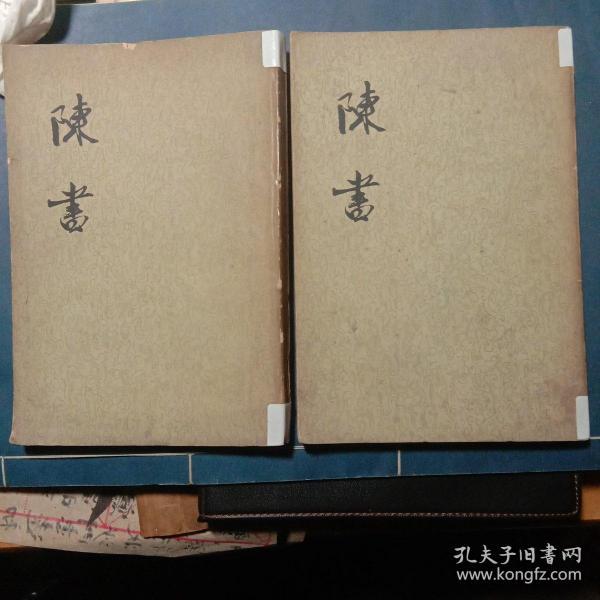 陳書
陳書
孔夫子旧書网
www.kongfz.com